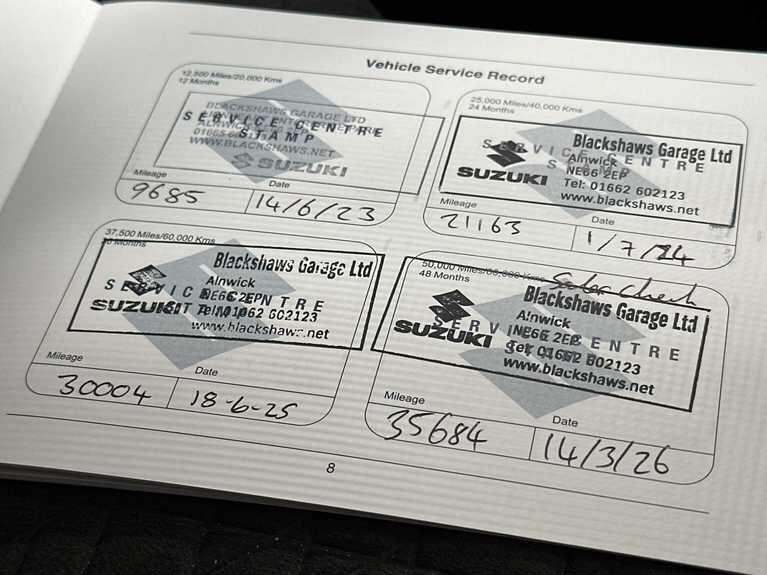 Vehicle Service Record
12,500 Miles/20,000 Kms
12 Months
BLACKSHAWS GARAGE LTD
SERVICE CENTRE
STAMP
WWW.BLACKSHAWS.NET
SUZUKI
Mileage
Date
9685
14/6/23
25,000 Miles/40,000 Kms
24 Months
Blackshaws Garage Ltd
SERVICE CENTRE
Alnwick
NE66 2EP
SUZUKI
Tel: 01662 602123
www.blackshaws.net
Mileage
Date
21163
1/7/24
37,500 Miles/60,000 Kms
36 Months
Blackshaws Garage Ltd
Alnwick
SERVICE CENTRE
NE66 2EP
SUZUKI
www.blackshaws.net
Mileage
Date
30004
18-6-25
48 Months
Blackshaws Garage Ltd
Alnwick
NE66 2EP
SERVICE CENTRE
SUZUKI
Tel: 01662 602123
www.blackshaws.net
Mileage
Date
35684
14/3/26
8